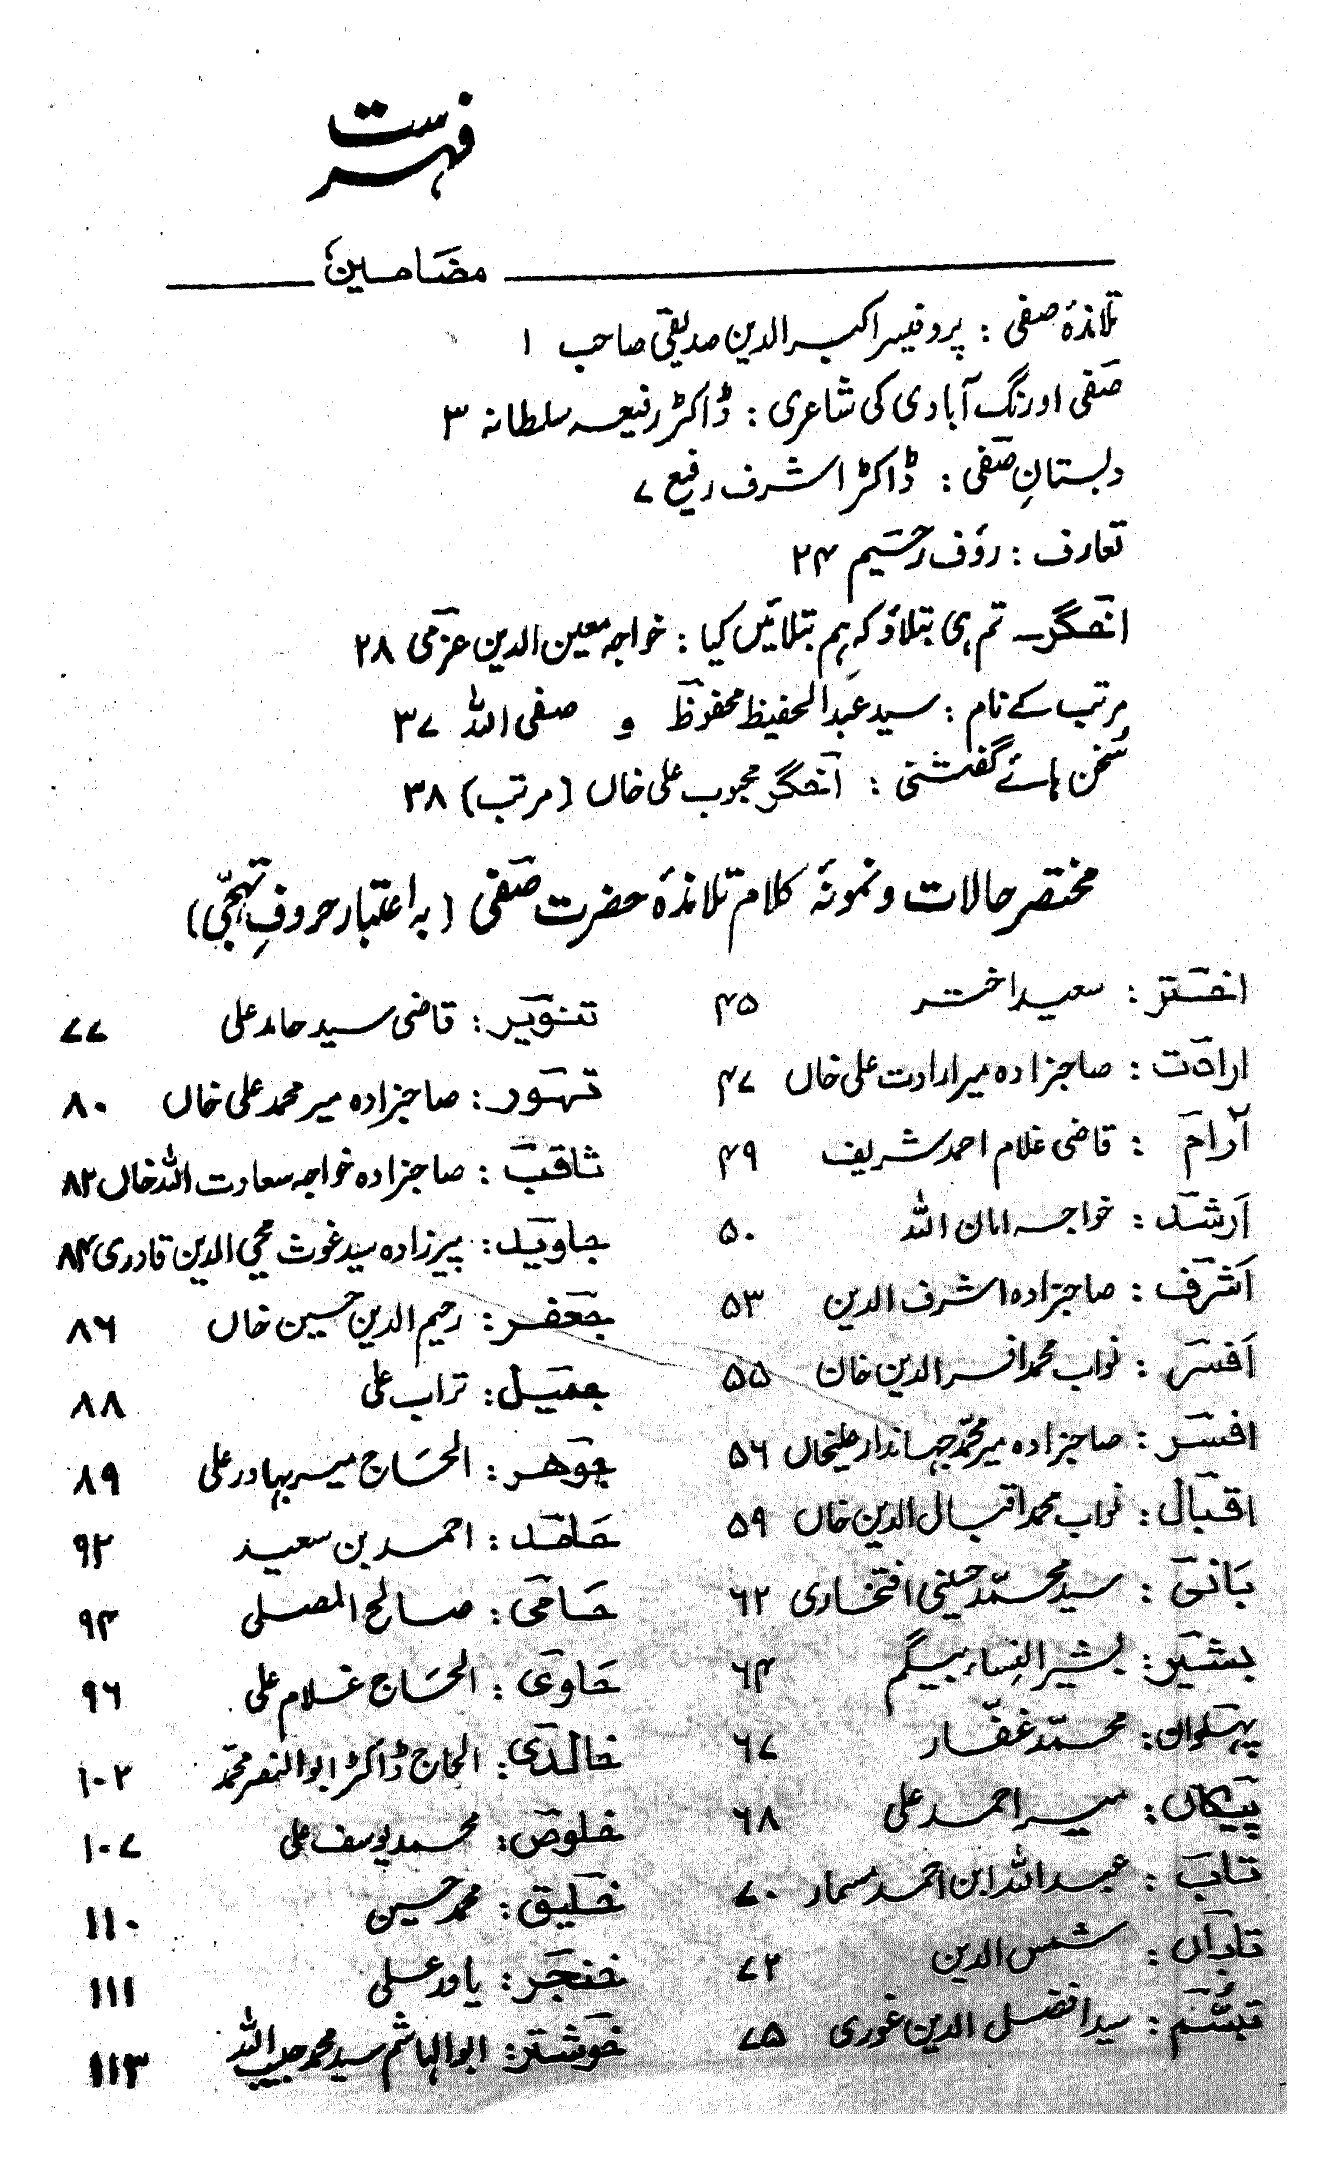 فہرست
مضامین
تلاندۂ صفی : پروفیسر اکبر الدین صدیقی صاحب ۱
صفی اورنگ آبادی کی شاعری : ڈاکٹر رفیعہ سلطانہ ۳
دبستانِ صفی : ڈاکٹر اشرف رفیع ۷
تعارف : رؤف رحیم ۲۴
اخگر۔ تم ہی بتلاؤ کہ ہم بتلائیں کیا : خواجہ معین الدین عزمی ۲۸
مرتب کے نام : سید عبدالحفیظ محفوظ و صفی اللہ ۳۷
سخن ہائے گفتنی : اخگر محبوب علی خاں (مرتب) ۳۸
مختصر حالات و نمونۂ کلام تلاندۂ حضرت صفی (بہ اعتبار حروفِ تہجی)
اختر : سعید اختر ۴۵
ارادت : صاحبزادہ میر ارادت علی خاں ۴۷
آرام : قاضی غلام احمد شریف ۴۹
ارشد : خواجہ امان اللہ ۵۰
اشرف : صاحبزادہ اشرف الدین ۵۳
افسر : نواب محمد افسر الدین خان ۵۵
افسر : صاحبزادہ میر محمد جہاندار علیخاں ۵۶
اقبال : نواب محمد اقبال الدین خاں ۵۹
بانی : سید محمد حسینی افتخاری ۶۲
بشیر : بشیر النساء بیگم ۶۴
پہلوان : محمد غفار ۶۷
پیکاں : میر احمد علی ۶۸
تاب : عبد اللہ ابن احمد مسمار ۷۰
تاباں : شمس الدین ۷۲
تبسم : سید افضل الدین غوری ۷۵
تنویر : قاضی سید حامد علی ۷۷
تہور : صاحبزادہ میر محمد علی خاں ۸۰
ثاقب : صاحبزادہ خواجہ سعادت اللہ خاں ۸۲
جاوید : پیرزادہ سید غوث محی الدین قادری ۸۴
جعفر : رحیم الدین حسین خاں ۸۶
جمیل : تراب علی ۸۸
جوہر : الحاج میر بہادر علی ۸۹
حامد : احمد بن سعید ۹۲
حامی : صالح المصلی ۹۴
حاوی : الحاج غلام علی ۹۶
خالدی : الحاج ڈاکٹر ابوالنصر محمد ۱۰۲
خلوص : محمد یوسف علی ۱۰۷
خلیق : محمد حسین ۱۱۰
خنجر : یاور علی ۱۱۱
خوشتر : ابوالہاشم سید محمد حبیب اللہ ۱۱۳